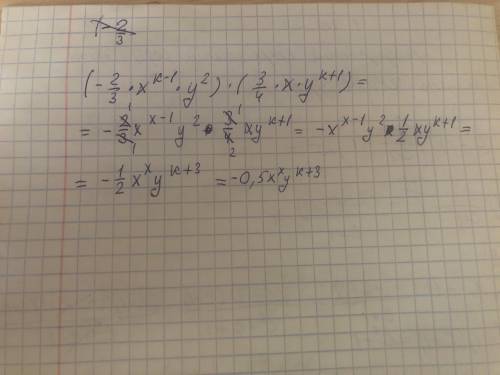 (-2/3 · x^(к-1) · y^2) · (3/4 · x · y^(к+1)) =
= -2/3 x^(x-1) y^2 · 3/4 xy^(к+1) = -x^(x-1) y^2 · 1/2 xy^(к+1) =
= -1/2 x^x y^(к+3) = -0,5x^x y^(к+3)